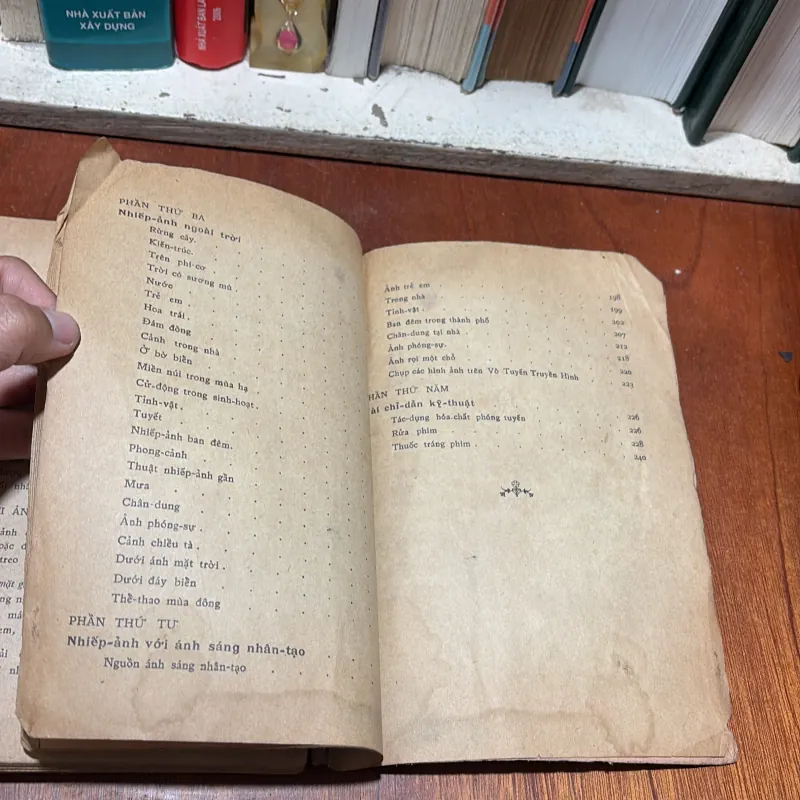 NHÀ XUẤT BẢN
XÂY DỰNG
NHÀ XUẤT BẢN LA
2005
PHẦN THỨ BA
Nhiếp-ảnh ngoài trời
Rừng cây.
Kiến-trúc.
Trên phi-cơ
Trời có sương mù
Nước
Trẻ em
Hoa trái
Đám đông
Cảnh trong nhà
Ở bờ biển
Miền núi trong mùa hạ
Cử-động trong sinh-hoạt.
Tĩnh-vật.
Tuyết
Nhiếp-ảnh ban đêm.
Phong-cảnh
Thuật nhiếp-ảnh gần
Mưa
Chân-dung
Ảnh phóng-sự
Cảnh chiều tà
Dưới ánh mặt trời
Dưới đáy biển
Thể-thao mùa đông
PHẦN THỨ TƯ
Nhiếp-ảnh với ánh sáng nhân-tạo
Nguồn ánh sáng nhân-tạo
Ảnh trẻ em
Trong nhà 198
Tĩnh-vật 199
Ban đêm trong thành phố 202
Chân-dung tại nhà 207
Ảnh phóng-sự. 212
Ảnh rọi một chỗ 218
Chụp các hình ảnh trên Vô Tuyến Truyền Hình 220
223
PHẦN THỨ NĂM
ài chỉ-dẫn kỹ-thuật
Tác-dụng hóa-chất phóng tuyến 226
Rửa phim 226
Thuốc tráng phim 228
240